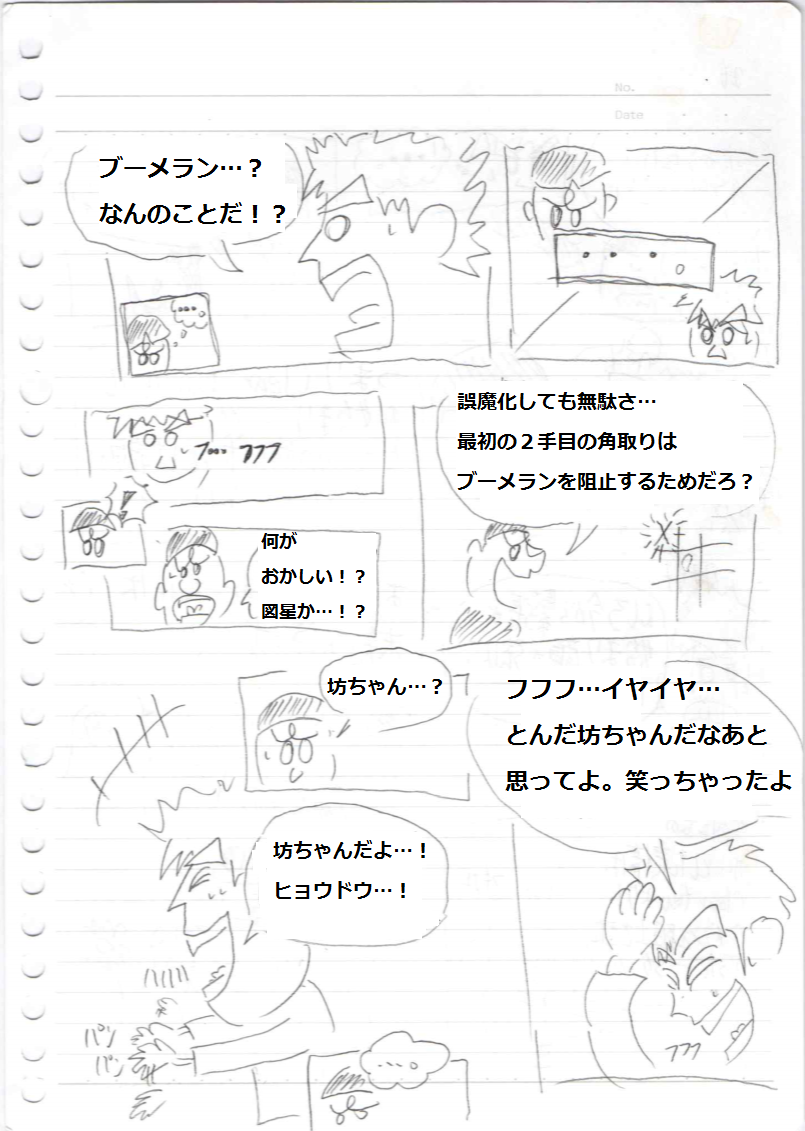 No.
Date
ブーメラン…？
なんのことだ！？
・・・
誤魔化しても無駄さ…
最初の２手目の角取りは
ブーメランを阻止するためだろ？
フフフ
！
何が
おかしい！？
図星か…！？
坊ちゃん…？
フフフ…イヤイヤ…
とんだ坊ちゃんだなあと
思ってよ。笑っちゃったよ
フフフ
坊ちゃんだよ…！
ヒョウドウ…！
パン
パン